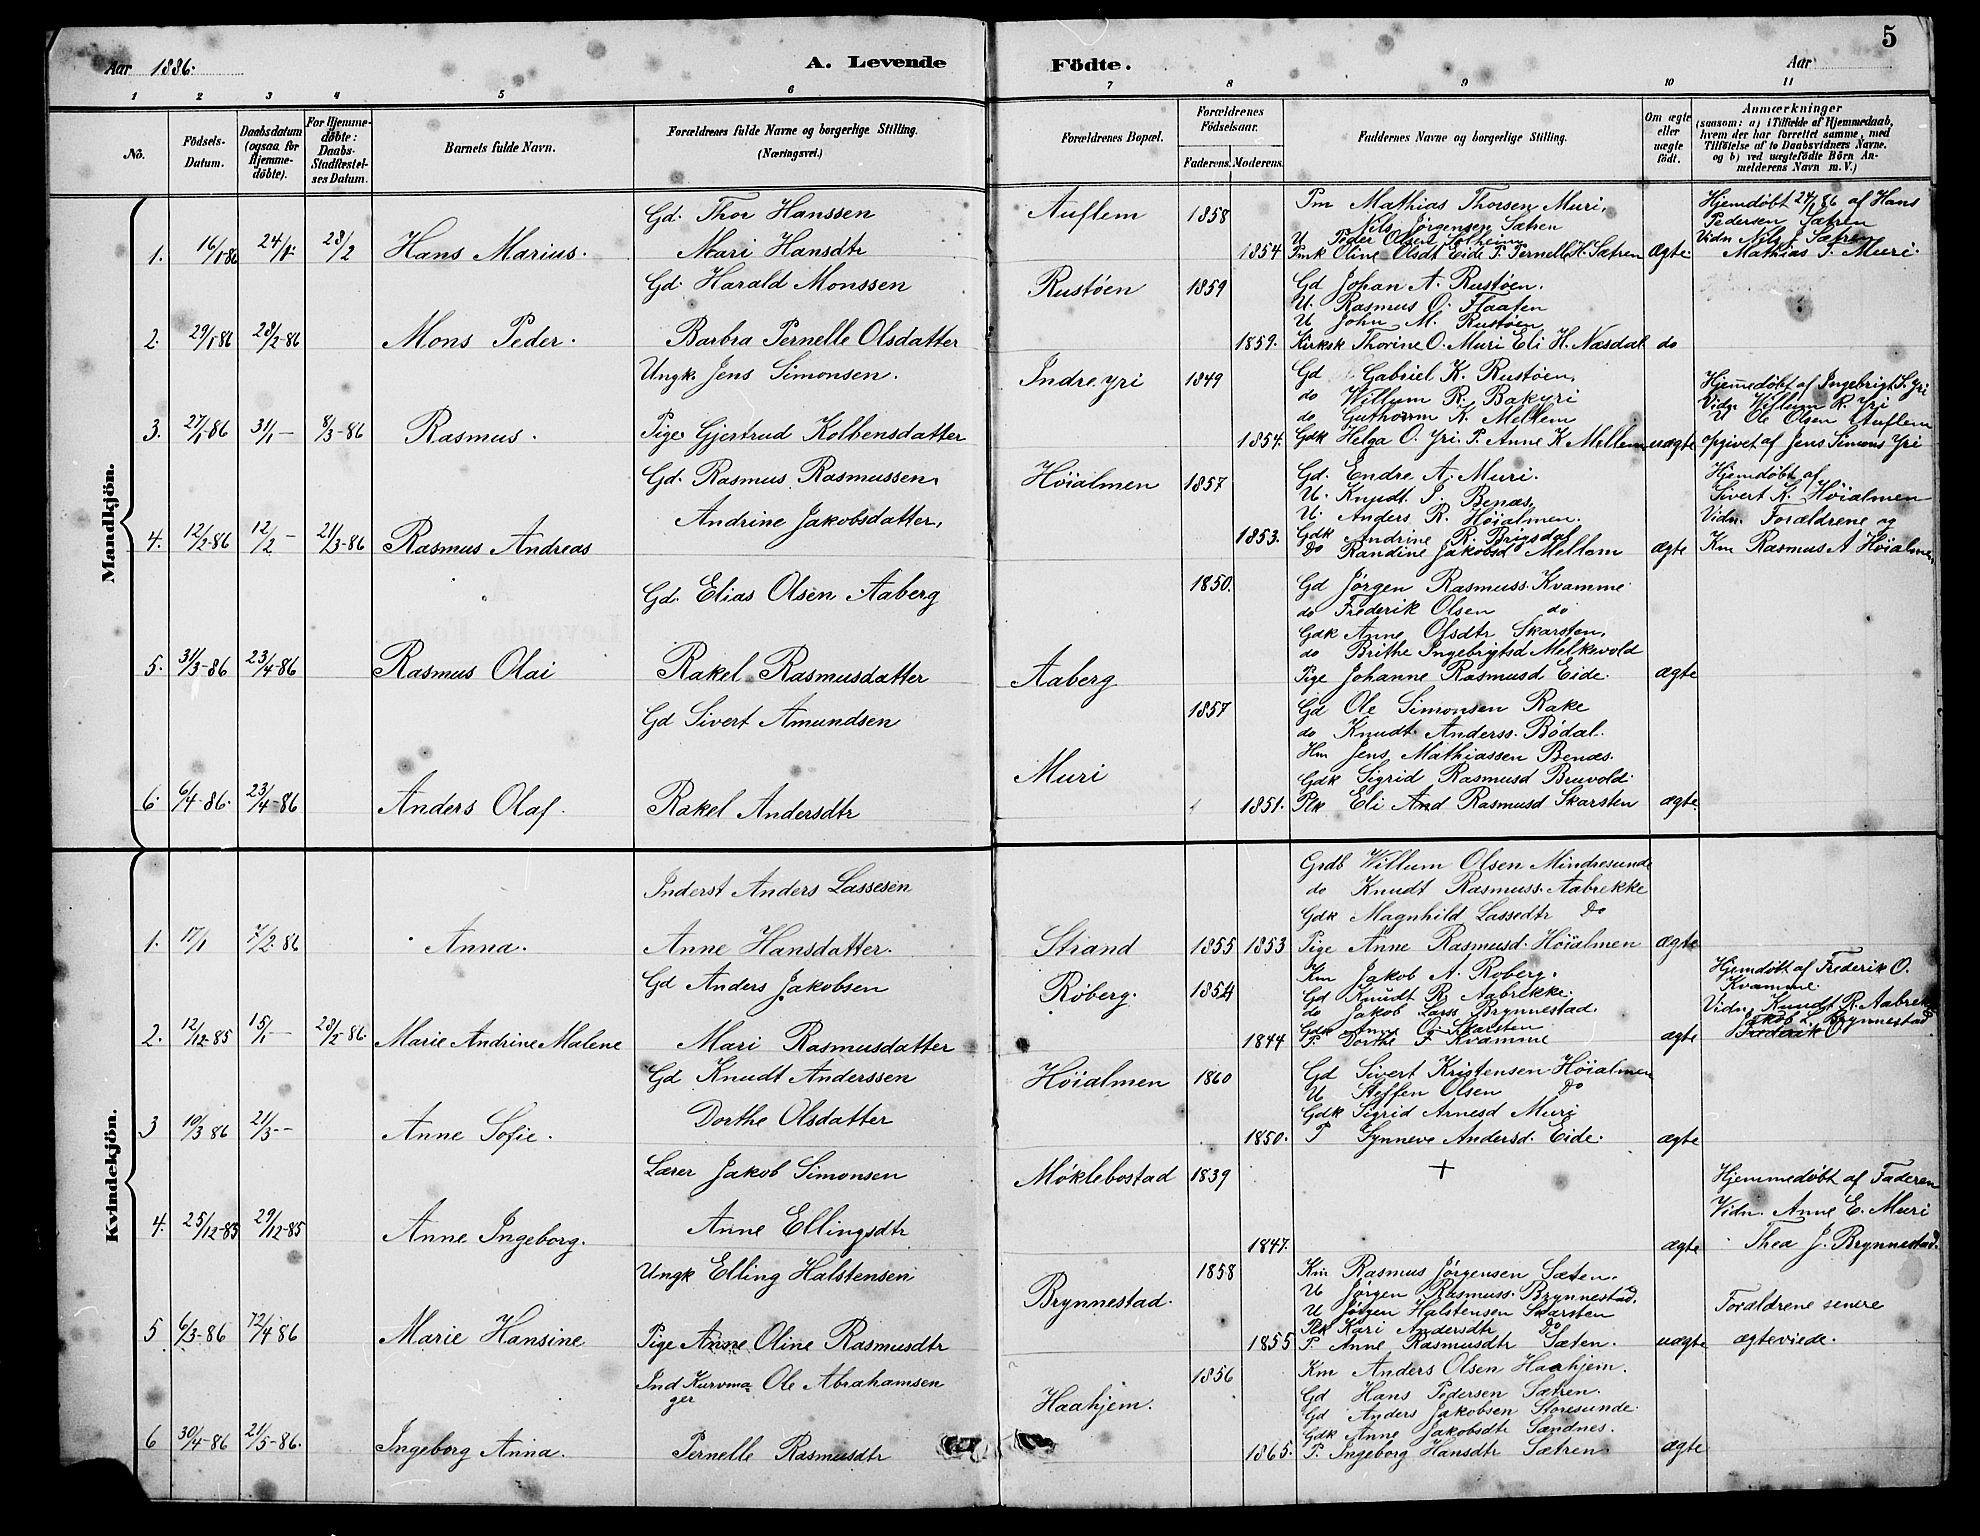 5
Aar 1886. A. Levende Födte. Aar
1 2 3 4 5 6 7 8 9 10 11
No.
Födsels-Datum.
Daabsdatum (ogsaa for Hjemmedöbte).
For Hjemmedöbte: Daabs-Stadfæstelses Datum.
Barnets fulde Navn.
Forældrenes fulde Navne og borgerlige Stilling.
(Næringsvei.)
Forældrenes Bopæl.
Forældrenes Födselsaar.
Faderens. Moderens.
Faddernes Navne og borgerlige Stilling.
Om ægte eller uægte födt.
Anmærkninger
(saasom: a) i Tilfælde af Hjemmedaab,
hvem der har forrettet samme, med
Tilföielse af to Daabsvidners Navne.
og b) ved uægtefödte Börn Anmelderens Navn m. V.)
Mandkjön.
1. 16/1 86 24/1 28/2 Hans Marius.
Gd. Thor Hanssen
Mari Hansdtr
Auflem 1858 1854
Pm Mathias Thorsen Muri,
Nils Jørgensen Sætren
U Peder Olsen Solheim
Pmk Oline Olsdt Eide P. Pernelle H. Sætren
Ægte
Hjemdøbt 24/1 86 af Hans
Pedersen Sætren
Vidn Nils J. Sætren
Mathias T. Muri.
2. 29/1 86 28/2-86 Mons Peder.
Gd. Harald Monssen
Barbra Pernelle Olsdatter
Rustøen 1859 1859.
Gd Johan A. Rustøen.
U. Rasmus O. Flaaten
U John M. Rustøen
Kirksk Thorine O. Muri Eli H. Næsdal
do
3. 27/1-86 31/1- 8/3-86 Rasmus.
Ungk. Jens Simonsen.
Pige Gjertrud Kolbensdatter
Indre yri 1849 1854.
Gd Gabriel K. Rustøen,
do Willum R. Bakyri
do Guthorm K. Mellem
Gdk Helga O. Yri. P. Anne K Mellem
uægte
Hjemmedøbt af Ingebrigt S. Yri
Vidn Willum R. Yri
U Ole Olsen Auflem
opgivet af Jens Simons Yri
4. 12/2-86 12/2- 21/3-86 Rasmus Andreas
Gd. Rasmus Rasmussen,
Andrine Jakobsdatter,
Høialmen 1857 1853.
Gd. Endre A. Muri.
U. Knudt P. Benæs,
U. Anders R. Høialmen.
Gdk Andrine R. Brigsdal
Do Randine Jakobsd Mellem
ægte
Hjemdøbt af
Sivert K. Høialmen
Vidn. Forældrene og
Km Rasmus A Høialmen,
5. 31/3-86 23/4-86 Rasmus Olai
Gd. Elias Olsen Aaberg
Rakel Rasmusdatter
Aaberg 1850.
Gd Jørgen Rasmuss. Kvamme
do Frederik Olsen do
Gdk Anne Olsdtr Skarsten,
do Brithe Ingebrigtsd Melkevold
Pige Johanne Rasmusd Eide.
ægte
6. 6/4-86. 23/4-86 Anders Olaf.
Gd Sivert Amundsen
Rakel Andersdtr
Muri 1857 1851.
Gd Ole Simonsen Rake
do Knudt Anderss. Bødal.
Hm Jens Mathiassen Benæs.
Gdk Sigrid Rasmusd Bruvold.
Plk Eli And Rasmusd Skarsten
ægte
Kvindekjön.
1. 17/1 7/2.86 Anna.
Inderst Anders Lassesen
Anne Hansdatter.
Strand 1855 1853
Grdb Willum Olsen Mindresunde
do Knudt Rasmuss. Aabrekke
Gdk Magnhild Lassedtr Do
Pige Anne Rasmusd. Høialmen
Ægte
2. 12/12-85 15/1- 28/2-86. Marie Andrine Malene
Gd Anders Jakobsen
Mari Rasmusdatter
Røberg. 1854 1844
Km Jakob A. Roberg.
Gd Knudt R. Aabrekke.
do Jakob Larss Brynnestad.
Gdk Anne O. Skarsten
P Dorthe F Kvamme
ægte
Hjemdøbt af Frederik O.
Kvamme.
Vidn. Knudt R. Aabrek
Jakob L. Brynnestad
Frederik O
3 10/3 86 21/3-- Anne Sofie.
Gd Knudt Anderssen
Dorthe Olsdatter
Høialmen 1860 1850.
Gd Sivert Kristensen Høialmen
U Steffen Olsen Do
Gdk Sigrid Arnesd Muri
P Synneve Andersd. Eide.
ægte
4. 25/12-85 29/12-85 Anne Ingeborg.
Lærer Jakob Simonsen
Anne Ellingsdtr
Møklebostad 1839 1847.
+
ægte
Hjemmedøbt af Faderen
Vidn. Anne E. Muri
Thea J. Brynnestad.
5 6/3-86 12/4 86 Marie Hansine
Ungk Elling Halstensen
Pige Anne Oline Rasmusdtr
Brynnestad. 1858 1855
Km Rasmus Jørgensen Sæten.
U Jørgen Rasmuss. Brynnestad.
U Jørgen Halstensen Skarsten
Plk Kari Andersdtr Do
P. Anne Rasmusdtr Sæten.
uægte
Forældrene senere
ægteviede.
6 30/4-86 21/5-86. Ingeborg Anna.
Ind Kurvmager Ole Abrahamsen
Pernelle Rasmusdtr
Haahjem. 1856 1865.
Km Anders Olsen Haahjem.
Gd Hans Pedersen Sætren.
Gd Anders Jakobsen Storesunde.
Gdk Anne Jakobsdt Sandnes.
P. Ingeborg Hansdtr Sætren.
ægte